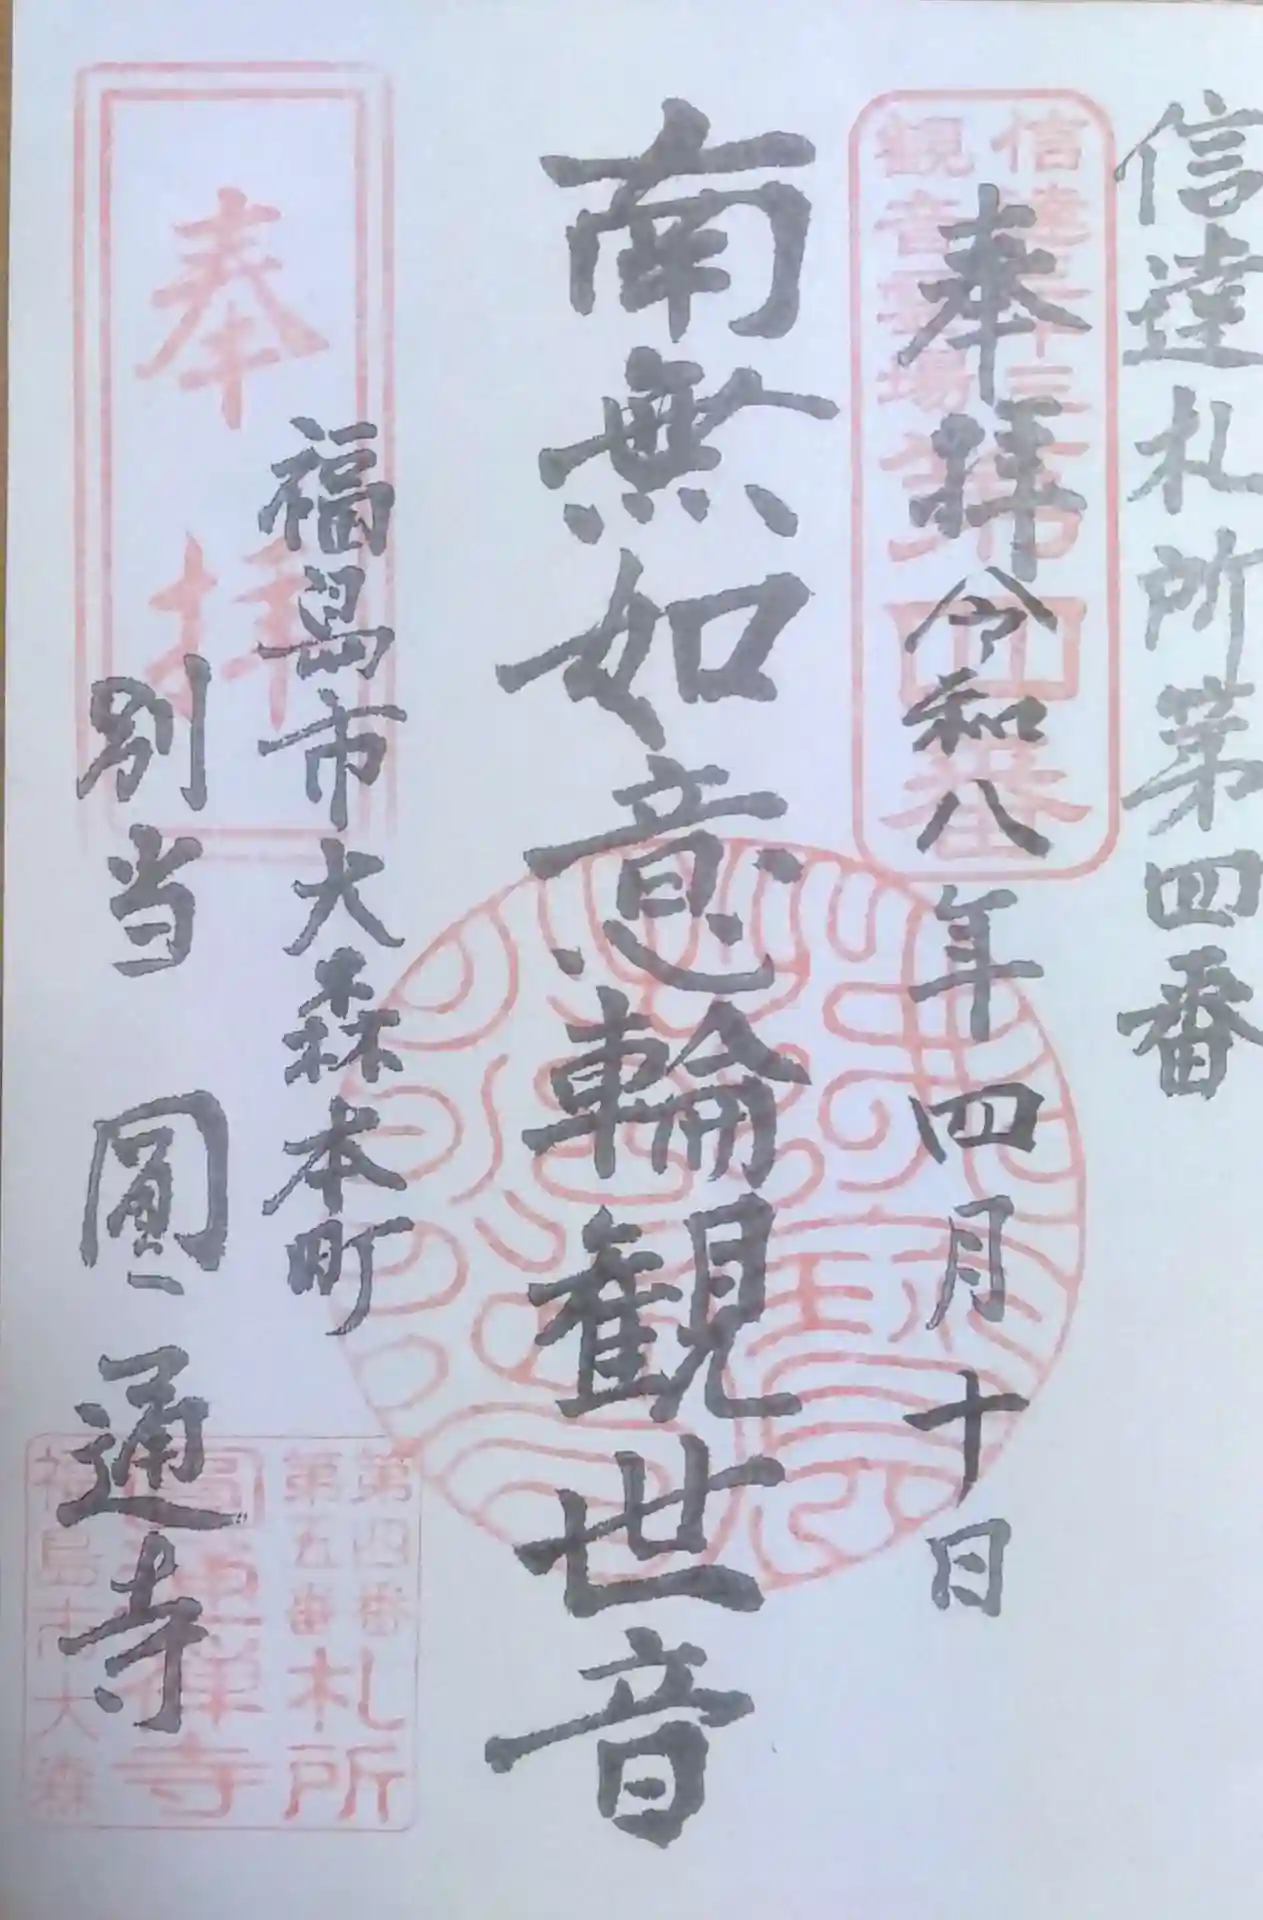 信達札所第四番
奉拝 令和八年四月十日
信達三十三
観音霊場
第四番
南無如意輪観世音
福島市大森本町
別当 圓通寺
奉拝
第四番
第五番
札所
圓通禅寺
福島市大森